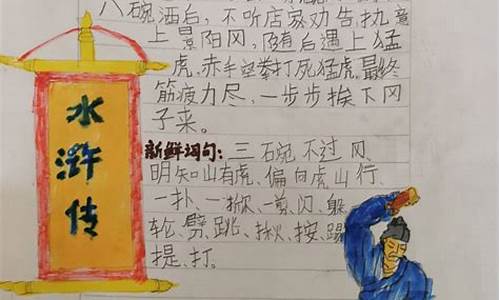 八碗酒后，不听店家劝告执意
上景阳冈，随后遇上猛
虎，赤手空拳打死猛虎，最终
筋疲力尽，一步步挨下冈
子来。
新鲜词句：三碗不过冈、
明知山有虎、偏向虎山行、
一扑、一掀、一剪、闪、躲、
轮、劈、跳、揪、按、踢、
提、打。
水浒传